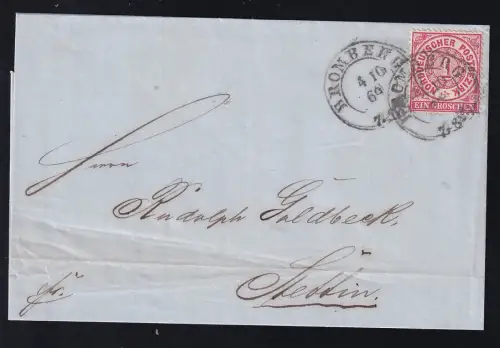 BROMBERG
4 10
69
NORDDEUTSCHER POSTBEZIRK
1
EIN GROSCHEN
Herrn
Rudolph Goldbeck.
fr.
Stettin.